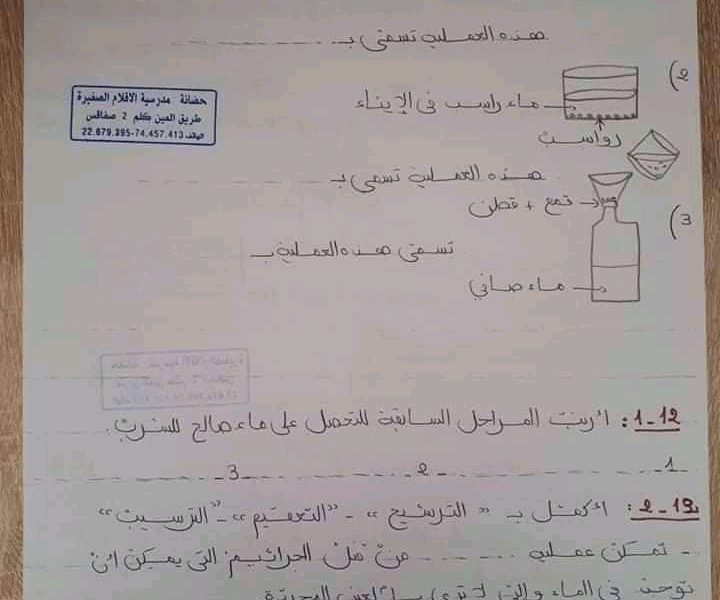 هذه العملية تسمى بـ
2)
حضانة مدرسية الاقلام الصغيرة
طريق العين كلم 2 صفاقس
الهاتف 22.679.395-74.457.413
ماء راسب في الإيناء
رواسب
هذه العملية تسمى بـ
3)
قمع + قطن
تسمى هذه العملية بـ
ماء صافي
1-12: أرتب المراحل السابقة للتحصل على ماء صالح للشرب.
1- 2- 3-
2-13: أكمل بـ "الترشيح" - "التعقيم" - "الترسيب"
- تمكن عملية من قتل الجراثيم التي يمكن أن
توجد في الماء والتي لا ترى بالعين المجردة